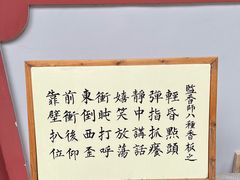 監香師八種香板之
輕昏點頭
彈指抓癢
靜中講話
嬉笑放蕩
衝盹打呼
東倒西歪
前衝後仰
靠壁扒位